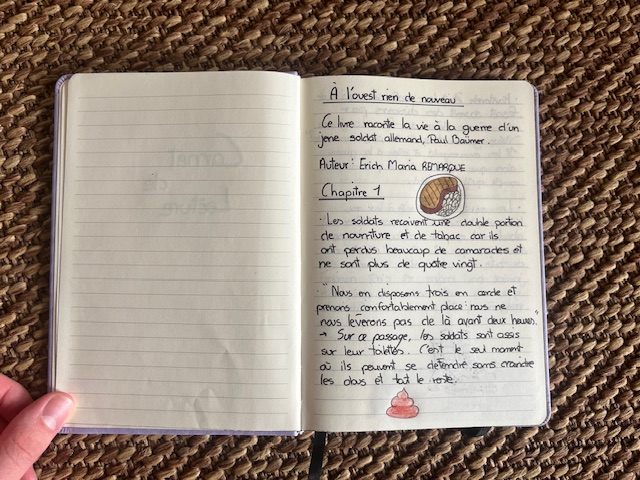 À l'ouest rien de nouveau
Ce livre raconte la vie à la guerre d'un
jene soldat allemand, Paul Baümer.
Auteur: Erich Maria REMARQUE
Chapitre 1
· Les soldats recoivent une double portion
de nourriture et de tabac car ils
ont perdus beaucoup de camarades et
ne sont plus de quatre vingt.
· "Nous en disposons trois en cercle et
prenons confortablement place: nous ne
nous lèverons pas de là avant deux heures."
→ Sur ce passage, les soldats sont assis
sur leur toilettes. C'est le seul moment
où ils peuvent se détendre sans craindre
les obus et tout le reste.